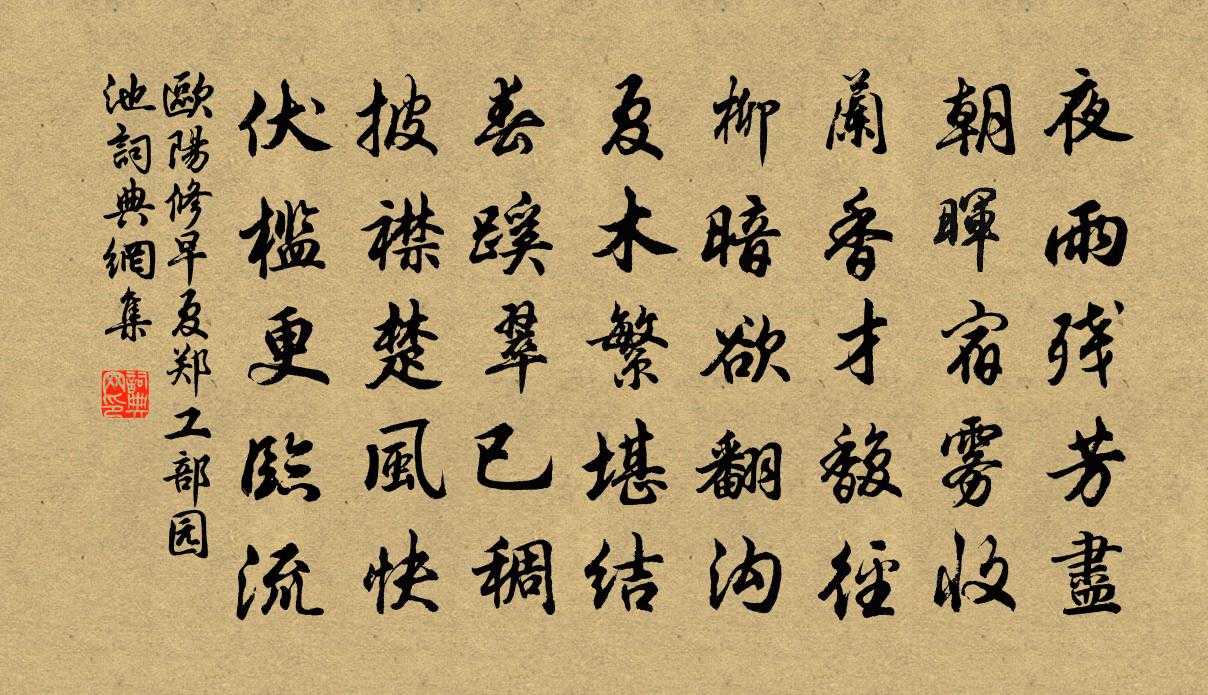 夜雨残芳盡
朝暉宿雾收
蘭香才馥徑
柳暗欲翻沟
夏木繁堪结
春蹊翠已稠
披襟楚風快
伏檻更臨流
歐陽修早夏郑工部园
池詞典網集
詞典網印